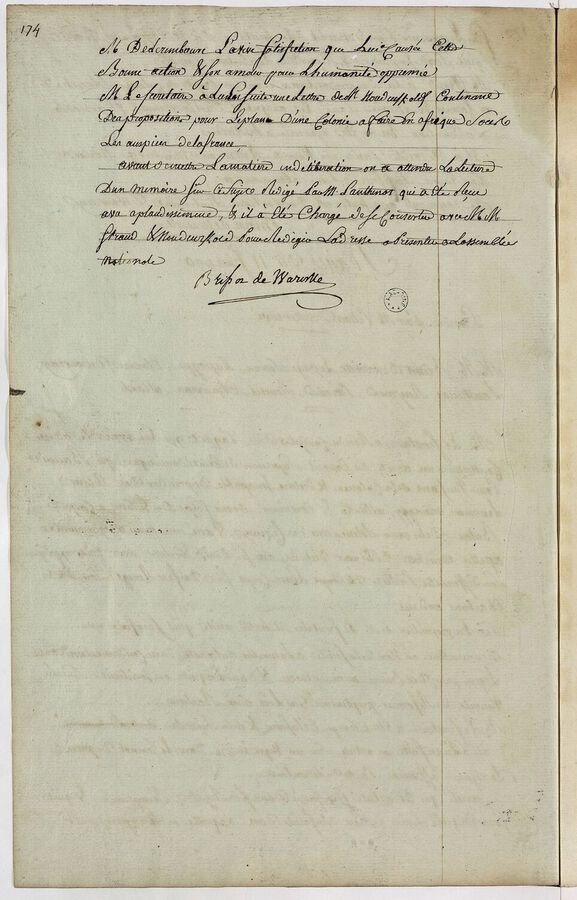 174
M Desrimbaur La vive Satisfaction que lui a Causée Cette
Bonne action & Son amour pour L'humanité opprimée
M Le Secretaire à Lu En Suite une Lettre de Mr Contenant
Des propositions pour Le plan D'une Colonie a faire En afrique Sous
Les auspices de la france
avant Soumettre La matiere En déliberation on a attendu La Lecture
D'un memoire Sur Ce Sujet Redigé Par M. Lanthenas qui a été Reçu
avec aplaudissement, & il à Eté Chargé de Se Concerter avec MM
& Pour Rediger L'adresse a Presenter a L'assemblée
Nationale
Brissot de Warville